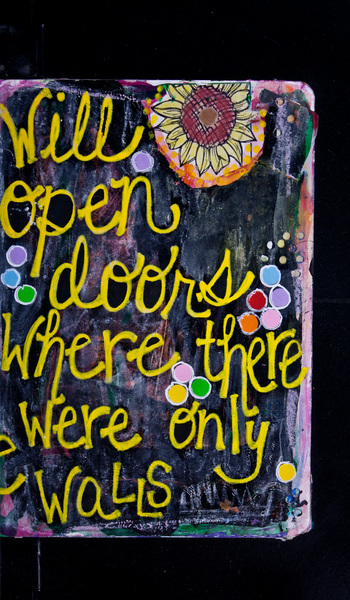 Will
open
doors
where there
were only
WALLS